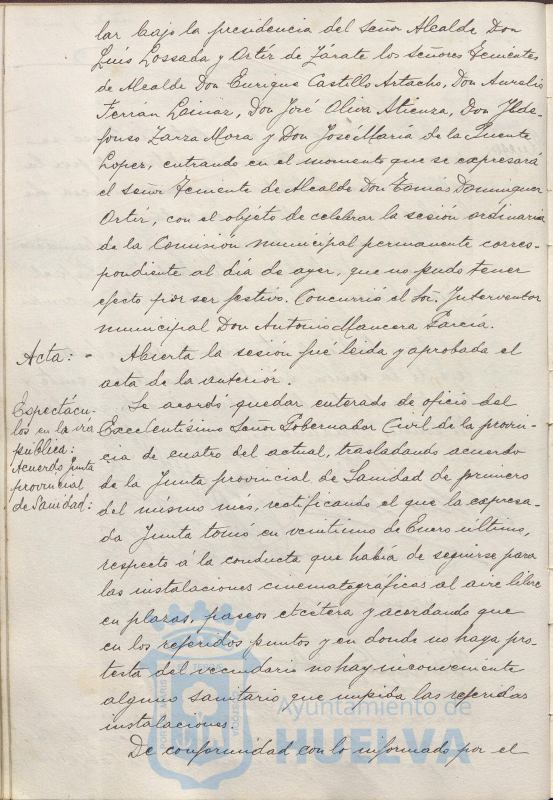 lar bajo la presidencia del señor Alcalde Don
Luis Lossada y Ortiz de Zárate los señores Tenientes
de Alcalde Don Enrique Castillo Artacho, Don Aurelio
Terrán Lainaz, Don José Oliva Atienza, Don Ilde-
fonso Zarza Mora y Don José María de la Puente
Lopez, entrando en el momento que se expresará
el señor Teniente de Alcalde Don Tomás Dominguez
Ortiz, con el objeto de celebrar la sesión ordinaria
de la Comisión municipal permanente corres-
pondiente al día de ayer, que no pudo tener
efecto por ser festivo. Concurrió el Sr. Interventor
municipal Don Antonio Mancera García.
Acta: - Abierta la sesión fué leida y aprobada el
acta de la anterior.
Espectácu-
los en la via
pública:
Acuerdo Junta
provincial
de Sanidad:
Se acordó quedar enterado de oficio del
Excelentísimo Señor Gobernador Civil de la provin-
cia de cuatro del actual, trasladando acuerdo
de la Junta provincial de Sanidad de primero
del mismo mes, rectificando el que la expresa-
da Junta tomó en veintiuno de Enero último,
respecto á la conducta que había de seguirse para
las instalaciones cinematográficas al aire libre
en plazas, paseos etcétera y acordando que
en los referidos puntos y en donde no haya pro-
testa del vecindario no hay inconveniente
alguno sanitario que impida las referidas
instalaciones.
De conformidad con lo informado por el
Ayuntamiento de
HUELVA